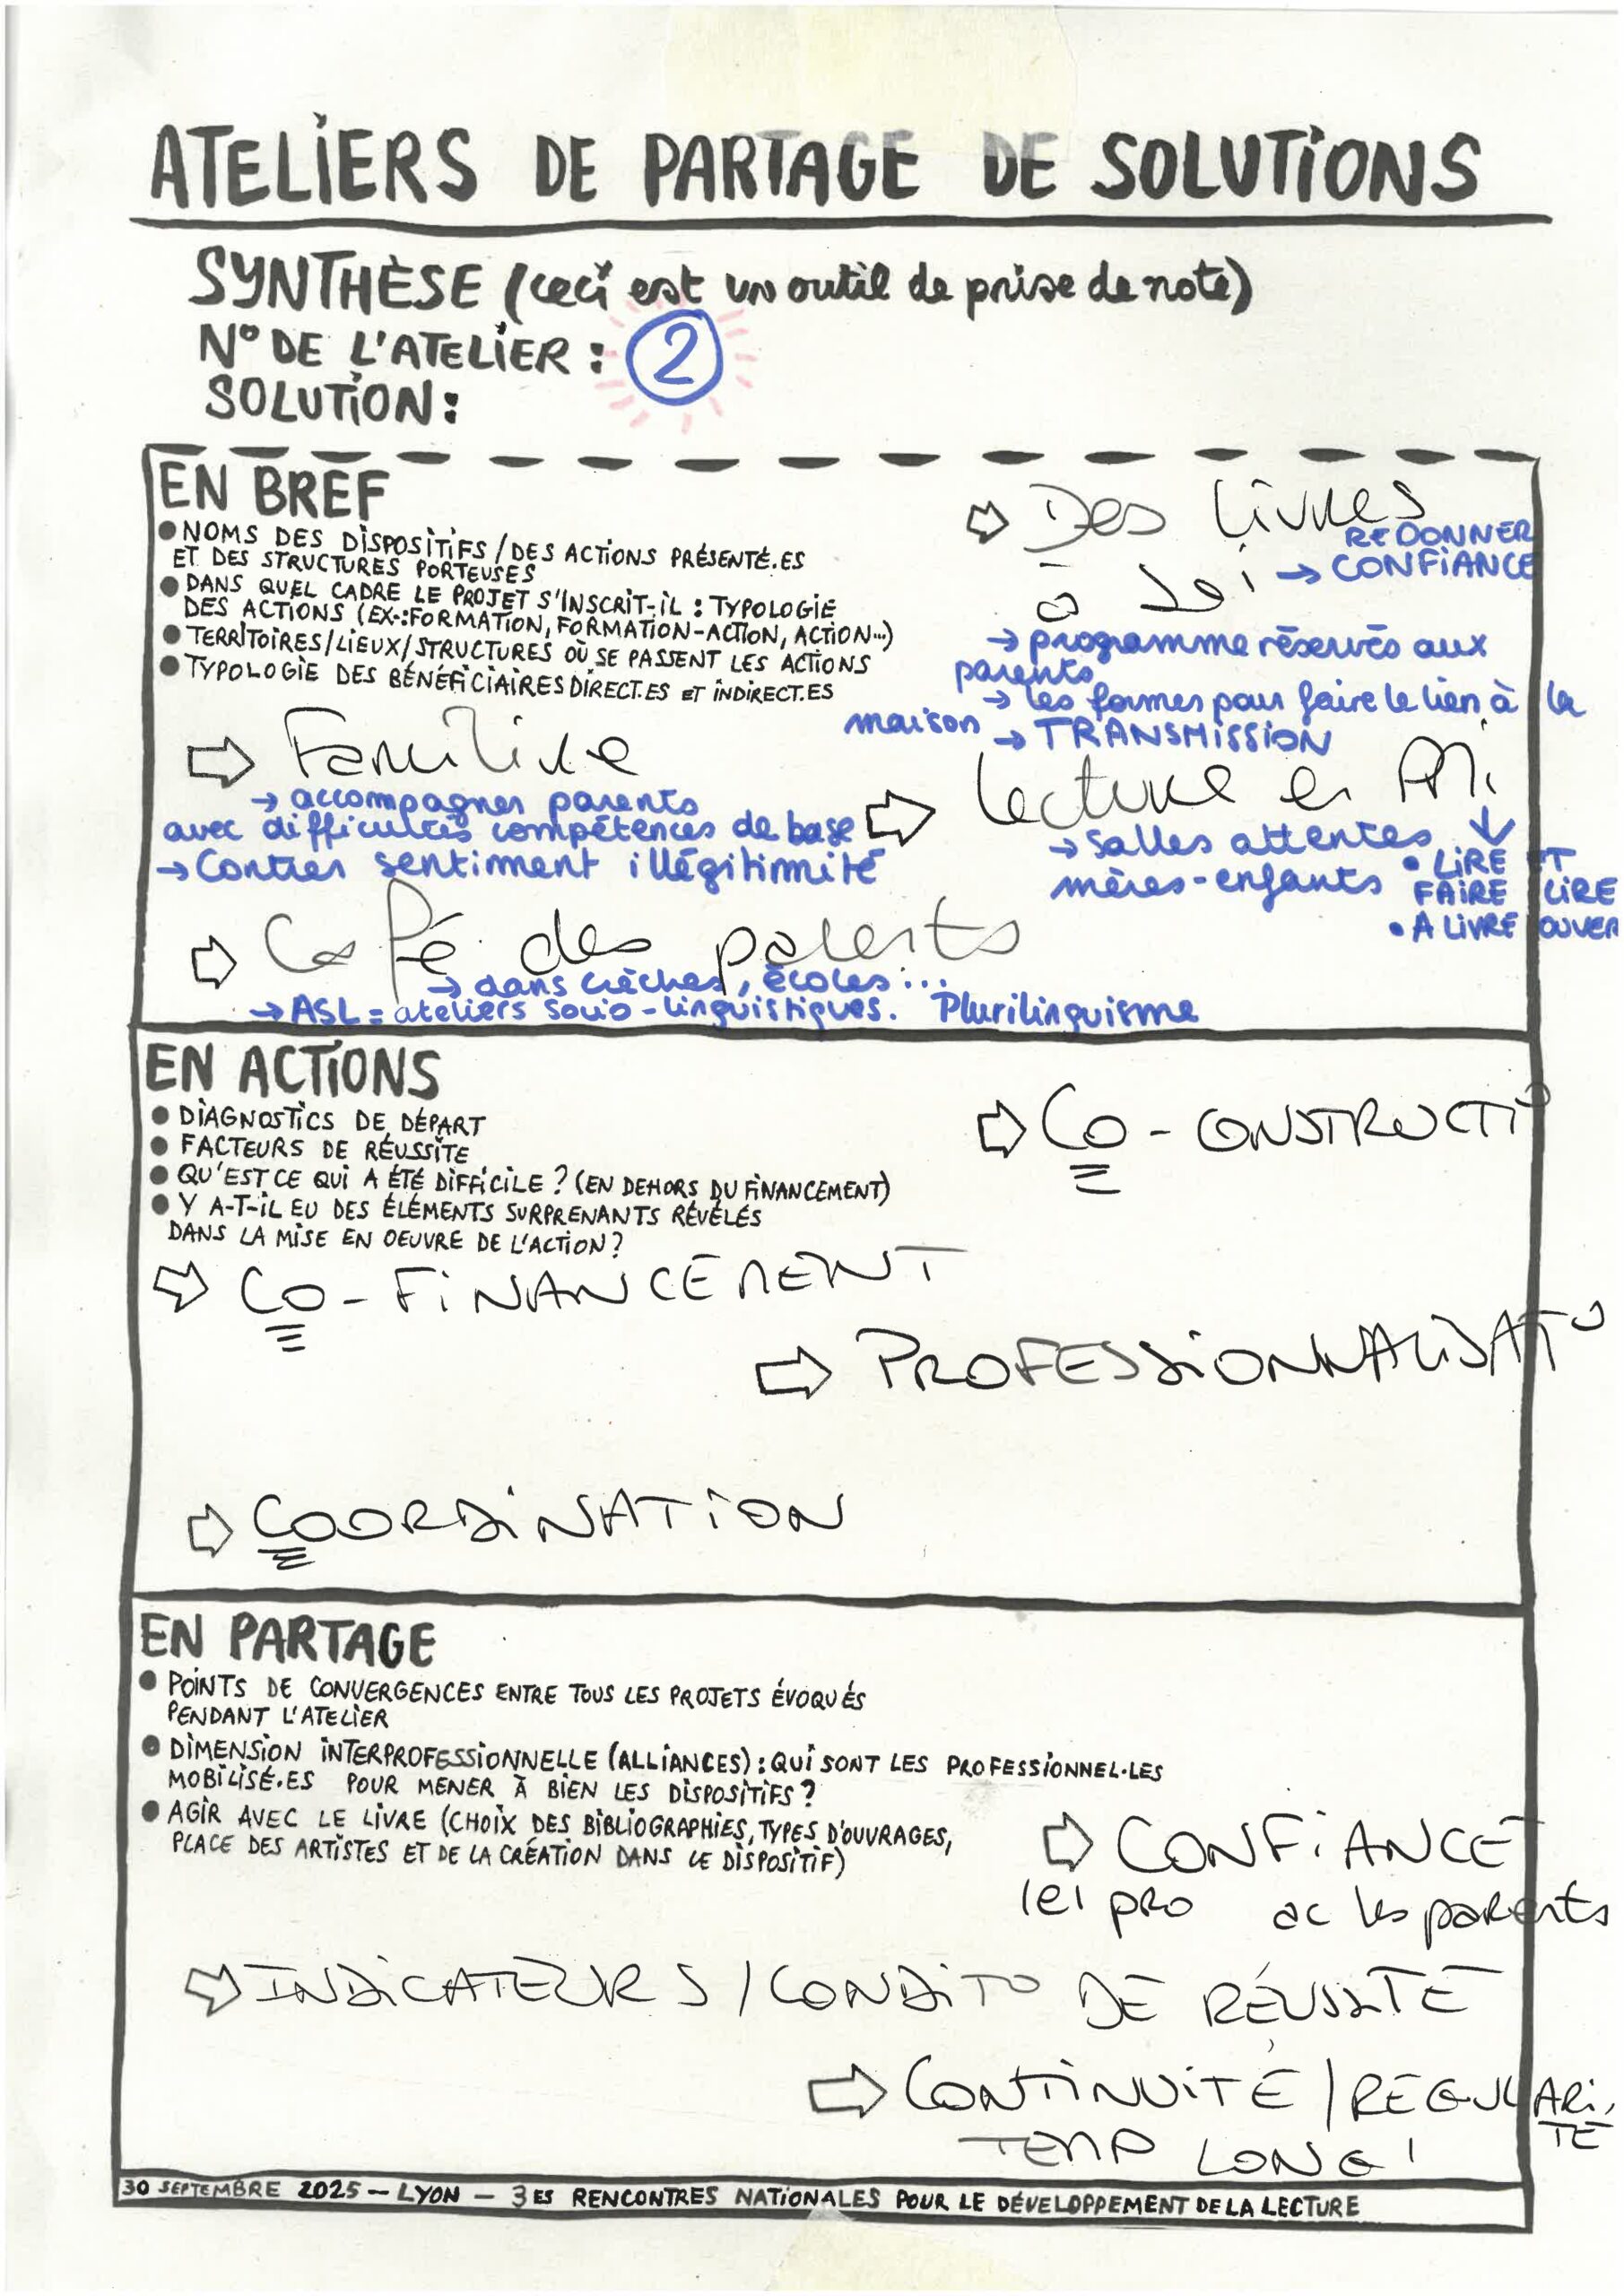 ATELIERS DE PARTAGE DE SOLUTIONS
SYNTHÈSE (ceci est un outil de prise de note)
N° DE L'ATELIER : 2
SOLUTION :
EN BREF
● NOMS DES DISPOSITIFS / DES ACTIONS PRÉSENTÉ.ES
ET DES STRUCTURES PORTEUSES
● DANS QUEL CADRE LE PROJET S'INSCRIT-IL : TYPOLOGIE
DES ACTIONS (EX.:FORMATION, FORMATION-ACTION, ACTION...)
● TERRITOIRES/LIEUX/STRUCTURES OÙ SE PASSENT LES ACTIONS
● TYPOLOGIE DES BÉNÉFICIAIRES DIRECT.ES ET INDIRECT.ES
⇨ Des livres
à soi
REDONNER
→ CONFIANCE
→ programme réservés aux
parents
→ les formes pour faire le lien à la
maison → TRANSMISSION
⇨ Famililire
→ accompagner parents
avec difficultés compétences de base
→ Contrer sentiment illégitimité
⇨ Lecture en PMi
→ Salles attentes ↓
mères-enfants
• LIRE ET
FAIRE LIRE
• A LIVRE OUVER
⇨ Café des parents
→ dans crèches, écoles...
→ ASL = ateliers socio-linguistiques. Plurilinguisme
EN ACTIONS
● DIAGNOSTICS DE DÉPART
● FACTEURS DE RÉUSSITE
● QU'EST CE QUI A ÉTÉ DIFFICILE ? (EN DEHORS DU FINANCEMENT)
● Y A-T-IL EU DES ÉLÉMENTS SURPRENANTS RÉVÉLÉS
DANS LA MISE EN OEUVRE DE L'ACTION ?
⇨ CO-CONSTRUCTIO
⇨ CO-FINANCEMENT
⇨ PROFESSIONNALISATO
⇨ COORDINATION
EN PARTAGE
● POINTS DE CONVERGENCES ENTRE TOUS LES PROJETS ÉVOQUÉS
PENDANT L'ATELIER
● DIMENSION INTERPROFESSIONNELLE (ALLIANCES) : QUI SONT LES PROFESSIONNEL.LES
MOBILISÉ.ES POUR MENER À BIEN LES DISPOSITIFS ?
● AGIR AVEC LE LIVRE (CHOIX DES BIBLIOGRAPHIES, TYPES D'OUVRAGES,
PLACE DES ARTISTES ET DE LA CRÉATION DANS LE DISPOSITIF)
⇨ CONFIANCE
pro ac les parents
⇨ INDICATEURS / CONDITO DE RÉUSSITE
⇨ CONTINUITÉ / REGULARI,
TE
TEMP LONG !
30 SEPTEMBRE 2025 – LYON – 3ES RENCONTRES NATIONALES POUR LE DÉVELOPPEMENT DE LA LECTURE